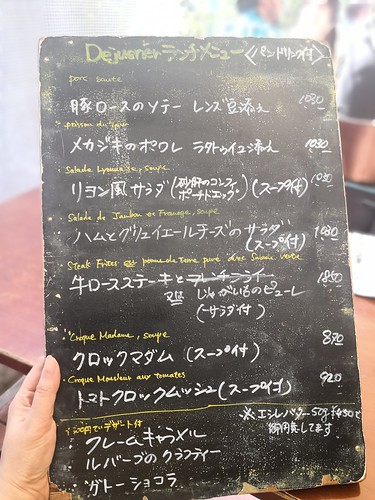 Dejuner ランチメニュー <パン、ドリンク付>
porc sauté
豚ロースのソテー レンズ豆添え 1080
poisson du jour
メカジキのポワレ ラタトゥイユ添え 1080
Salade Lyonnaise, soupe
リヨン風サラダ (砂肝のコンフィ ポーチドエッグ) (スープ付) 1080
Salade de Jambon et Fromage, soupe
ハムとグリュイエールチーズのサラダ 1080
(スープ付)
Steak Frites
牛ロースステーキとフレンチフライ 1850
じゃがいものピューレ
(サラダ付)
Croque Madame, soupe
クロックマダム (スープ付) 870
Croque Monsieur aux tomates
トマトクロックムッシュ (スープ付) 920
※エシレバター 50g ¥450で
御用意してます
デザート付
クレームキャラメル
ルバーブのクラフティー
ガトーショコラ